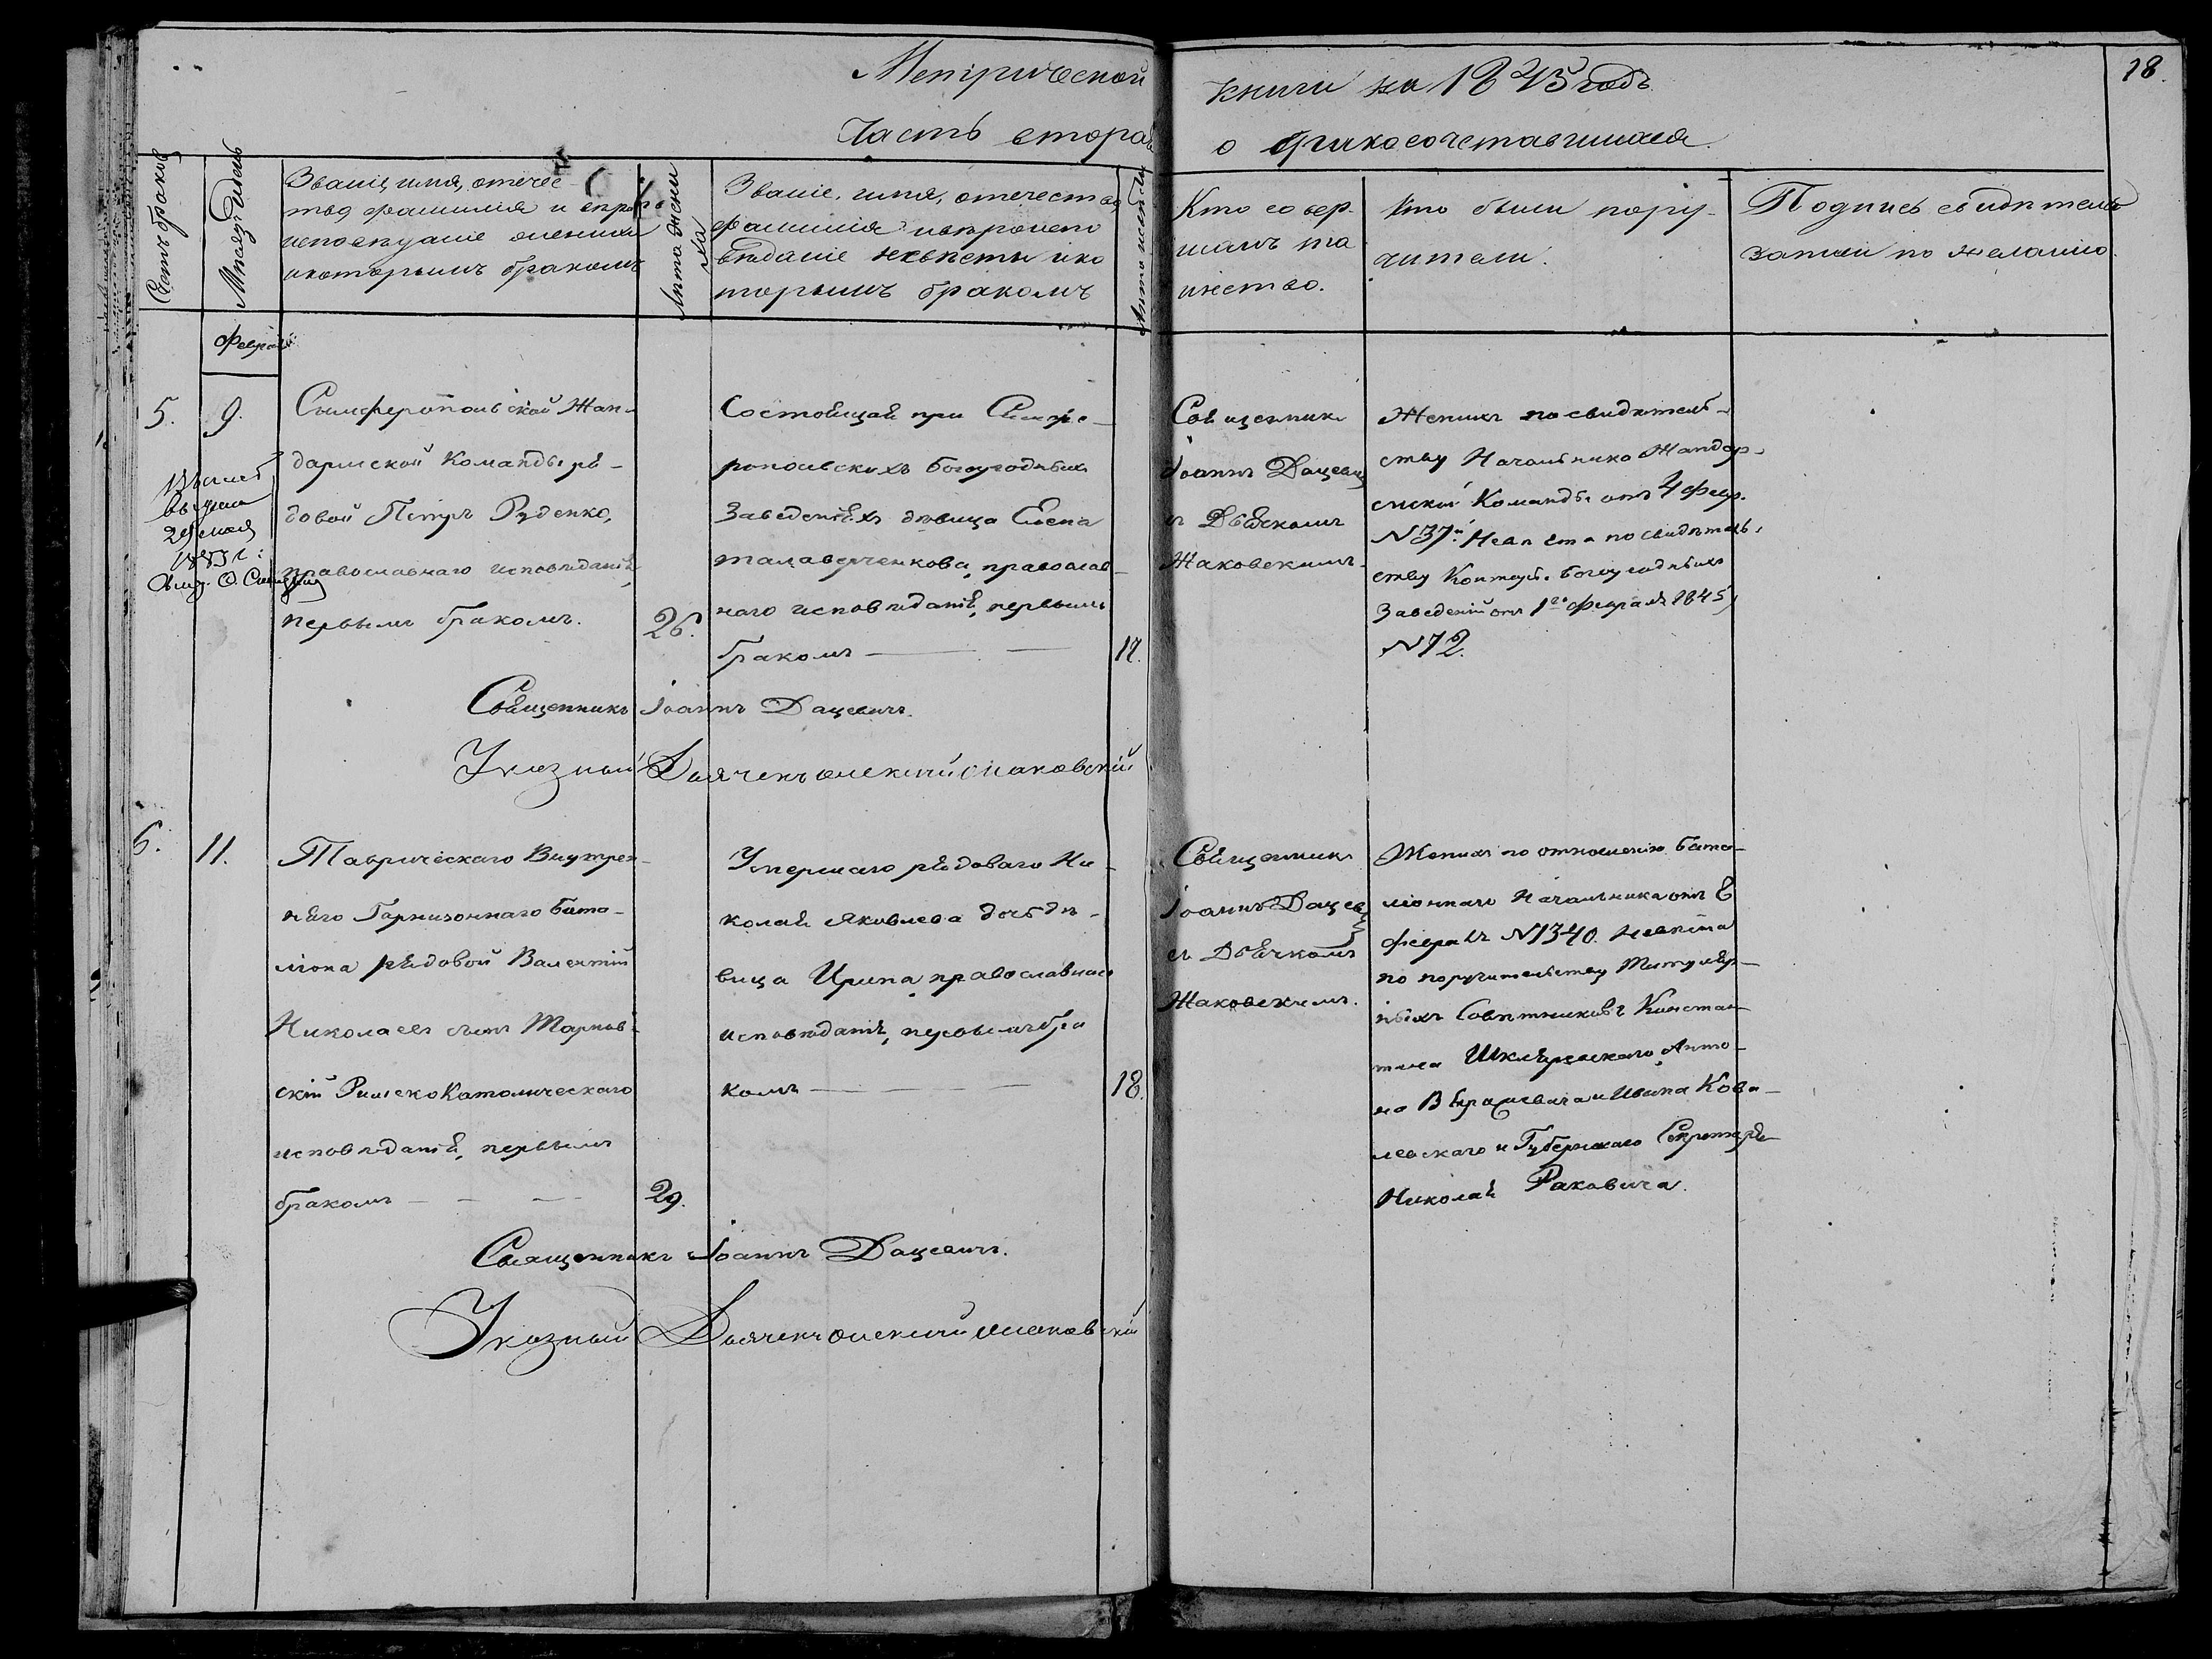 Метрической книги на 1845 годъ
18.
Часть вторая о бракосочетавшихся.
Счетъ браковъ
Мѣсяцъ и день
Званіе, имя, отечес-
тво, фамилія и
исповѣданіе жениха
и которымъ бракомъ
Лѣта жени
ха
Званіе, имя, отечество,
фамилія и вѣроиспо
вѣданіе невѣсты и ко
торымъ бракомъ
Лѣта невѣсты
Кто совер-
шалъ та
инство.
Кто были пору-
чители.
Подпись свидѣтелей
записи по желанію.
Февраля
5.
9.
29 мая
Симферопольской Жан-
дармской Команды ря-
довой Петръ Руденко,
православнаго исповѣданія,
первымъ бракомъ.
26.
Состоящая при Симфе-
ропольскихъ Богоугодныхъ
Заведеніяхъ дѣвица Елена
православ-
наго исповѣданія, первымъ
бракомъ
17.
Священникъ
Іоаннъ Дацевичъ
съ Дьячкомъ
Жаковскимъ.
Женихъ по свидѣтель-
ству Начальника Жандар-
мской Команды отъ 4 Февр.
№ 37й Невѣста по свидѣтель-
ству Конторы Богоугодныхъ
Заведеній отъ 1го Февраля 1845,
№ 72.
Священникъ Іоаннъ Дацевичъ.
Указный Дьячекъ
6.
11.
Таврическаго Внутрен-
няго Гарнизоннаго бата-
ліона рядовой Валентій
Николаевъ сынъ Тарнов-
скій Римско Католическаго
исповѣданія, первымъ
бракомъ
29.
Умершаго рядоваго Ни-
колая Яковлева дочь дѣ-
вица Ирина православнаго
исповѣданія, первымъ бра
комъ
18.
Священникъ
Іоаннъ Дацевичъ
съ Дьячкомъ
Жаковскимъ.
Женихъ по отношенію бата-
ліоннаго Начальника отъ 8
февраля № 1340. Невѣста
по поручительству Титуляр-
ныхъ Совѣтниковъ Констан-
тина Шклярскаго, Анто-
на и Ивана Кова-
левскаго и Губернскаго Секретаря
Николая Раковича.
Священникъ Іоаннъ Дацевичъ.
Указный Дьячекъ